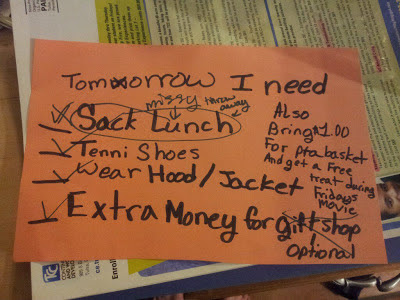 Tomorrow I need
missy throw away
Sack Lunch
Tenni Shoes
Wear Hood/Jacket
Extra Money for gift shop
optional
Also
Bring $1.00
For pta basket
And get a Free
treat during
Fridays
Movie